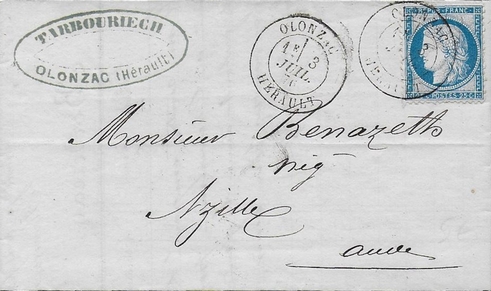 TARBOURIECH
OLONZAC (Hérault)
OLONZAC
1E 3
JUIL.
HÉRAULT
OLONZAC
FRANC
POSTES 25 C
Monsieur Benazeth
nég
Azille
aude